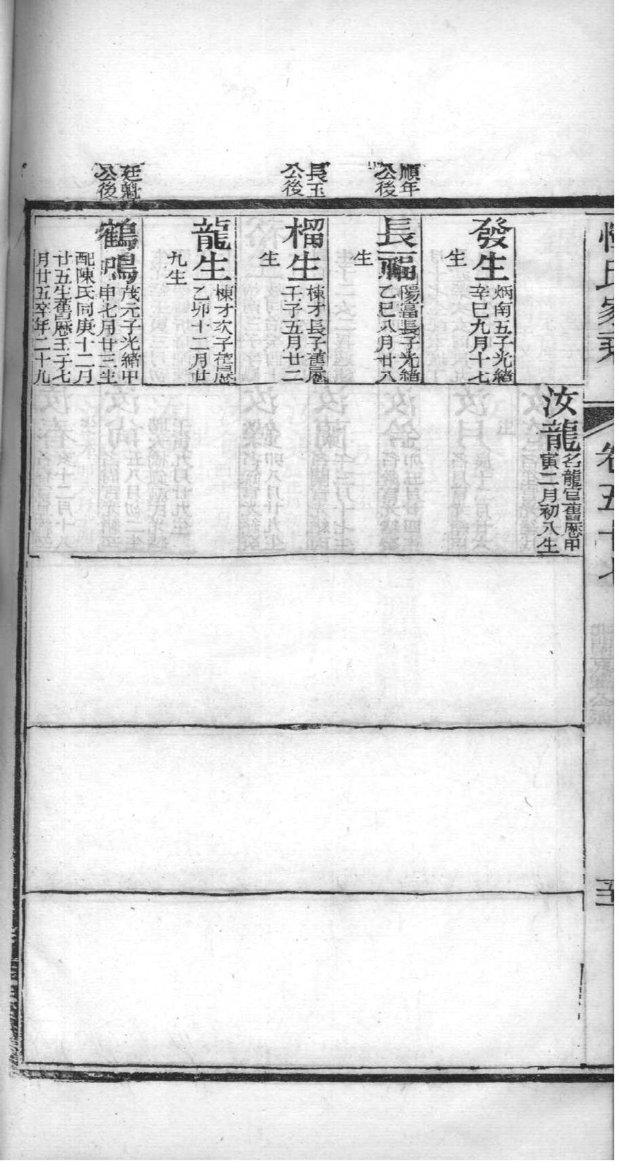 順年
公後
長玉
公後
廷魁
公後
發生
炳南五子光緒
辛巳九月十七
生
長福
陽富長子光緒
乙巳八月廿八
生
榴生
棟才長子舊曆
壬子五月廿二
生
龍生
棟才次子舊曆
乙卯十二月廿
九生
鶴鳴
茂元子光緒甲
申七月廿三生
配陳氏同庚十二月
廿五生舊曆壬子七
月廿五卒年二十九
汝龍
名龍官舊曆甲
寅二月初八生
氏家乘
卷五十七